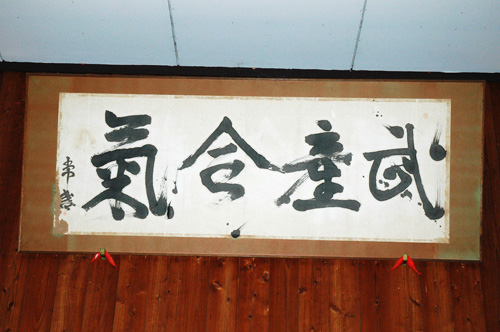 武産合氣
常盛